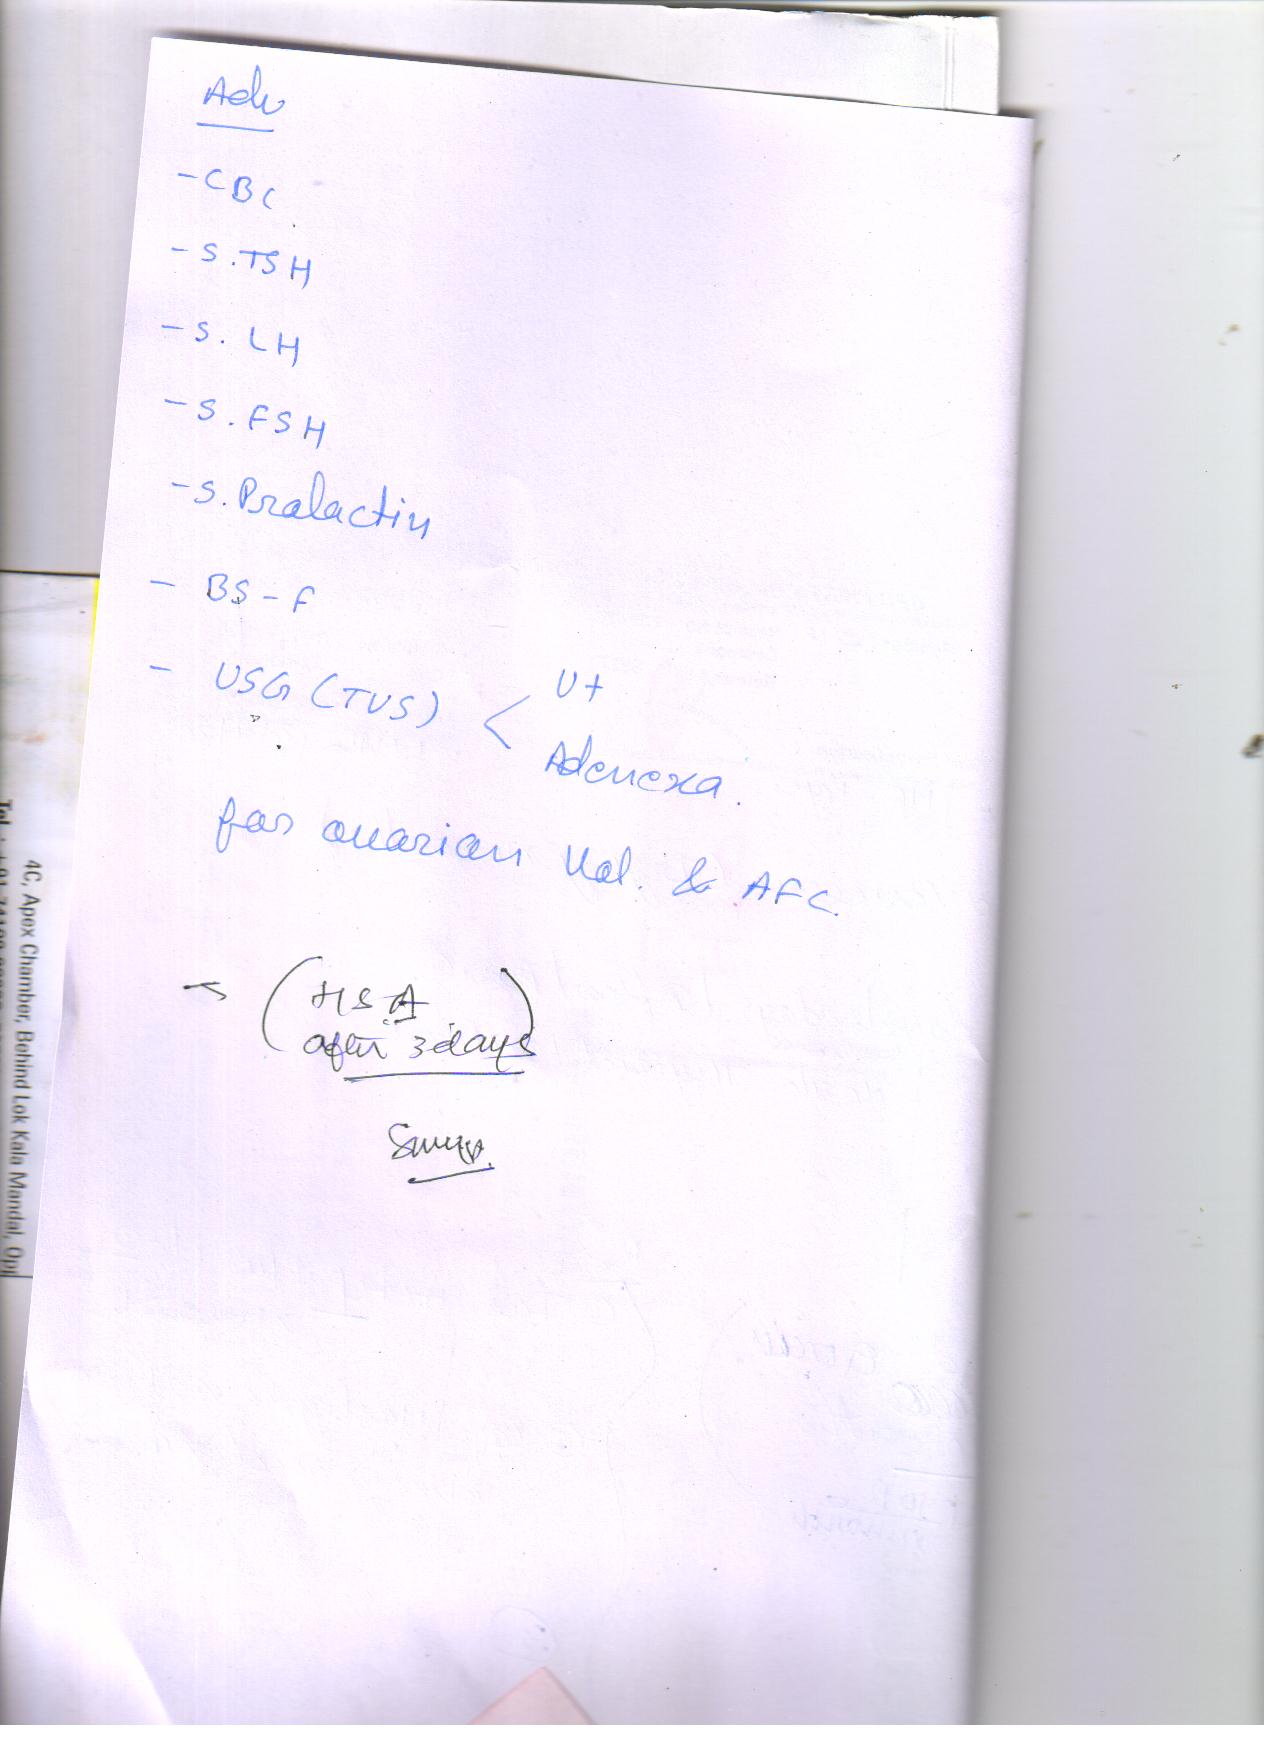 Adv
- CBC
- S. TSH
- S. LH
- S. FSH
- S. Prolactin
- BS - F
- USG (TVS) < Ut
Adenexa.
for ovarian Vol. & AFC.
→ (HSA
after 3 days)
4C, Apex Chamber, Behind Lok Kala Mandal, Opp